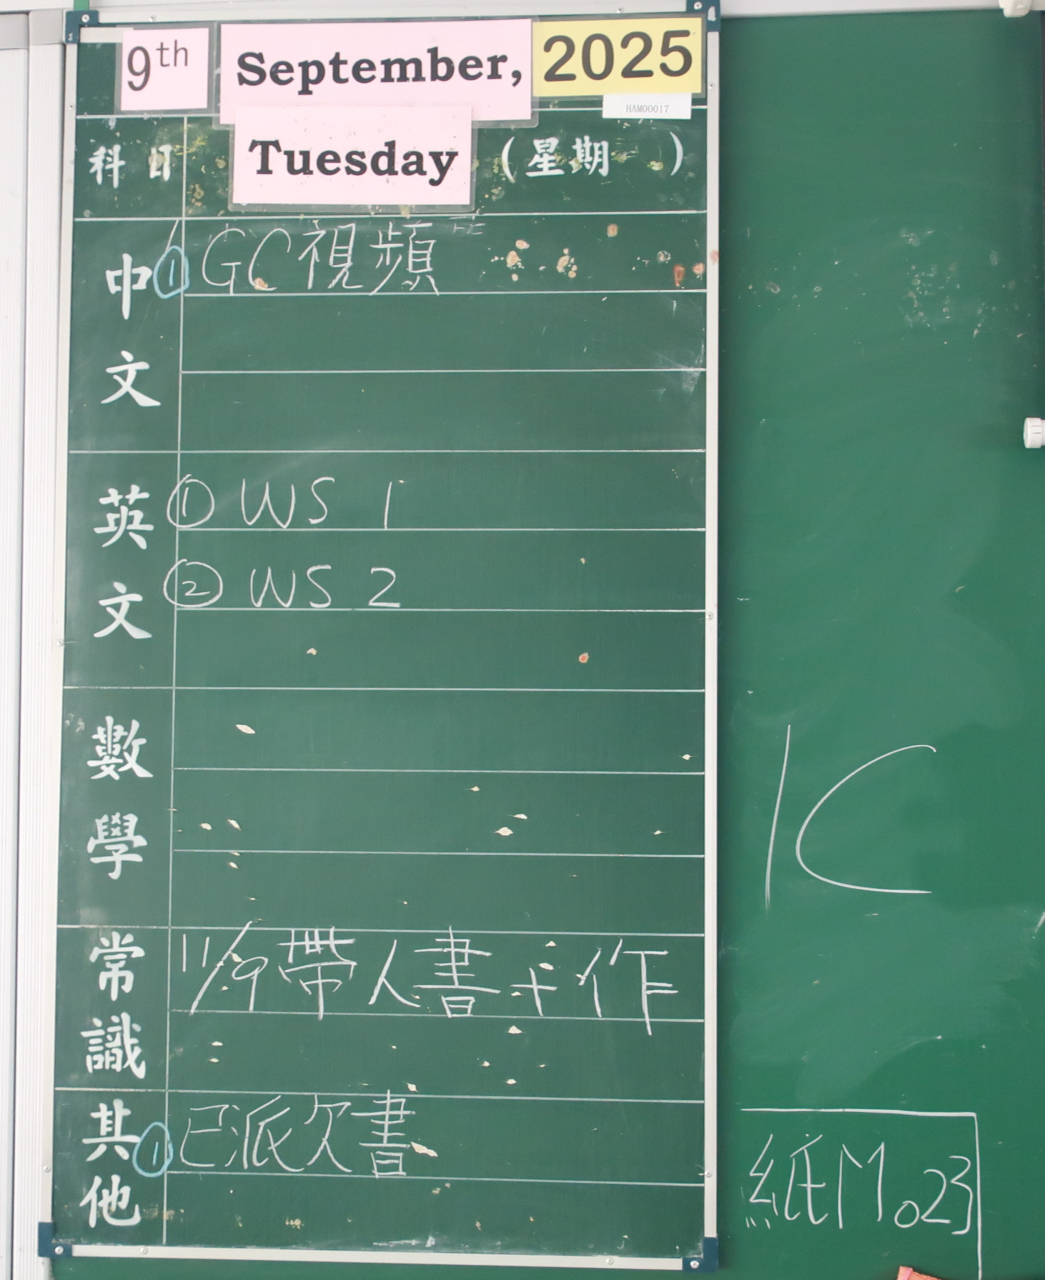 9th September, 2025
HAM00017
科目 Tuesday (星期 )
中文 ① GC視頻
英文 ① WS 1
② WS 2
數學
常識 11/9帶人書+作
其他 ① 已派欠書
1C
紙M。23